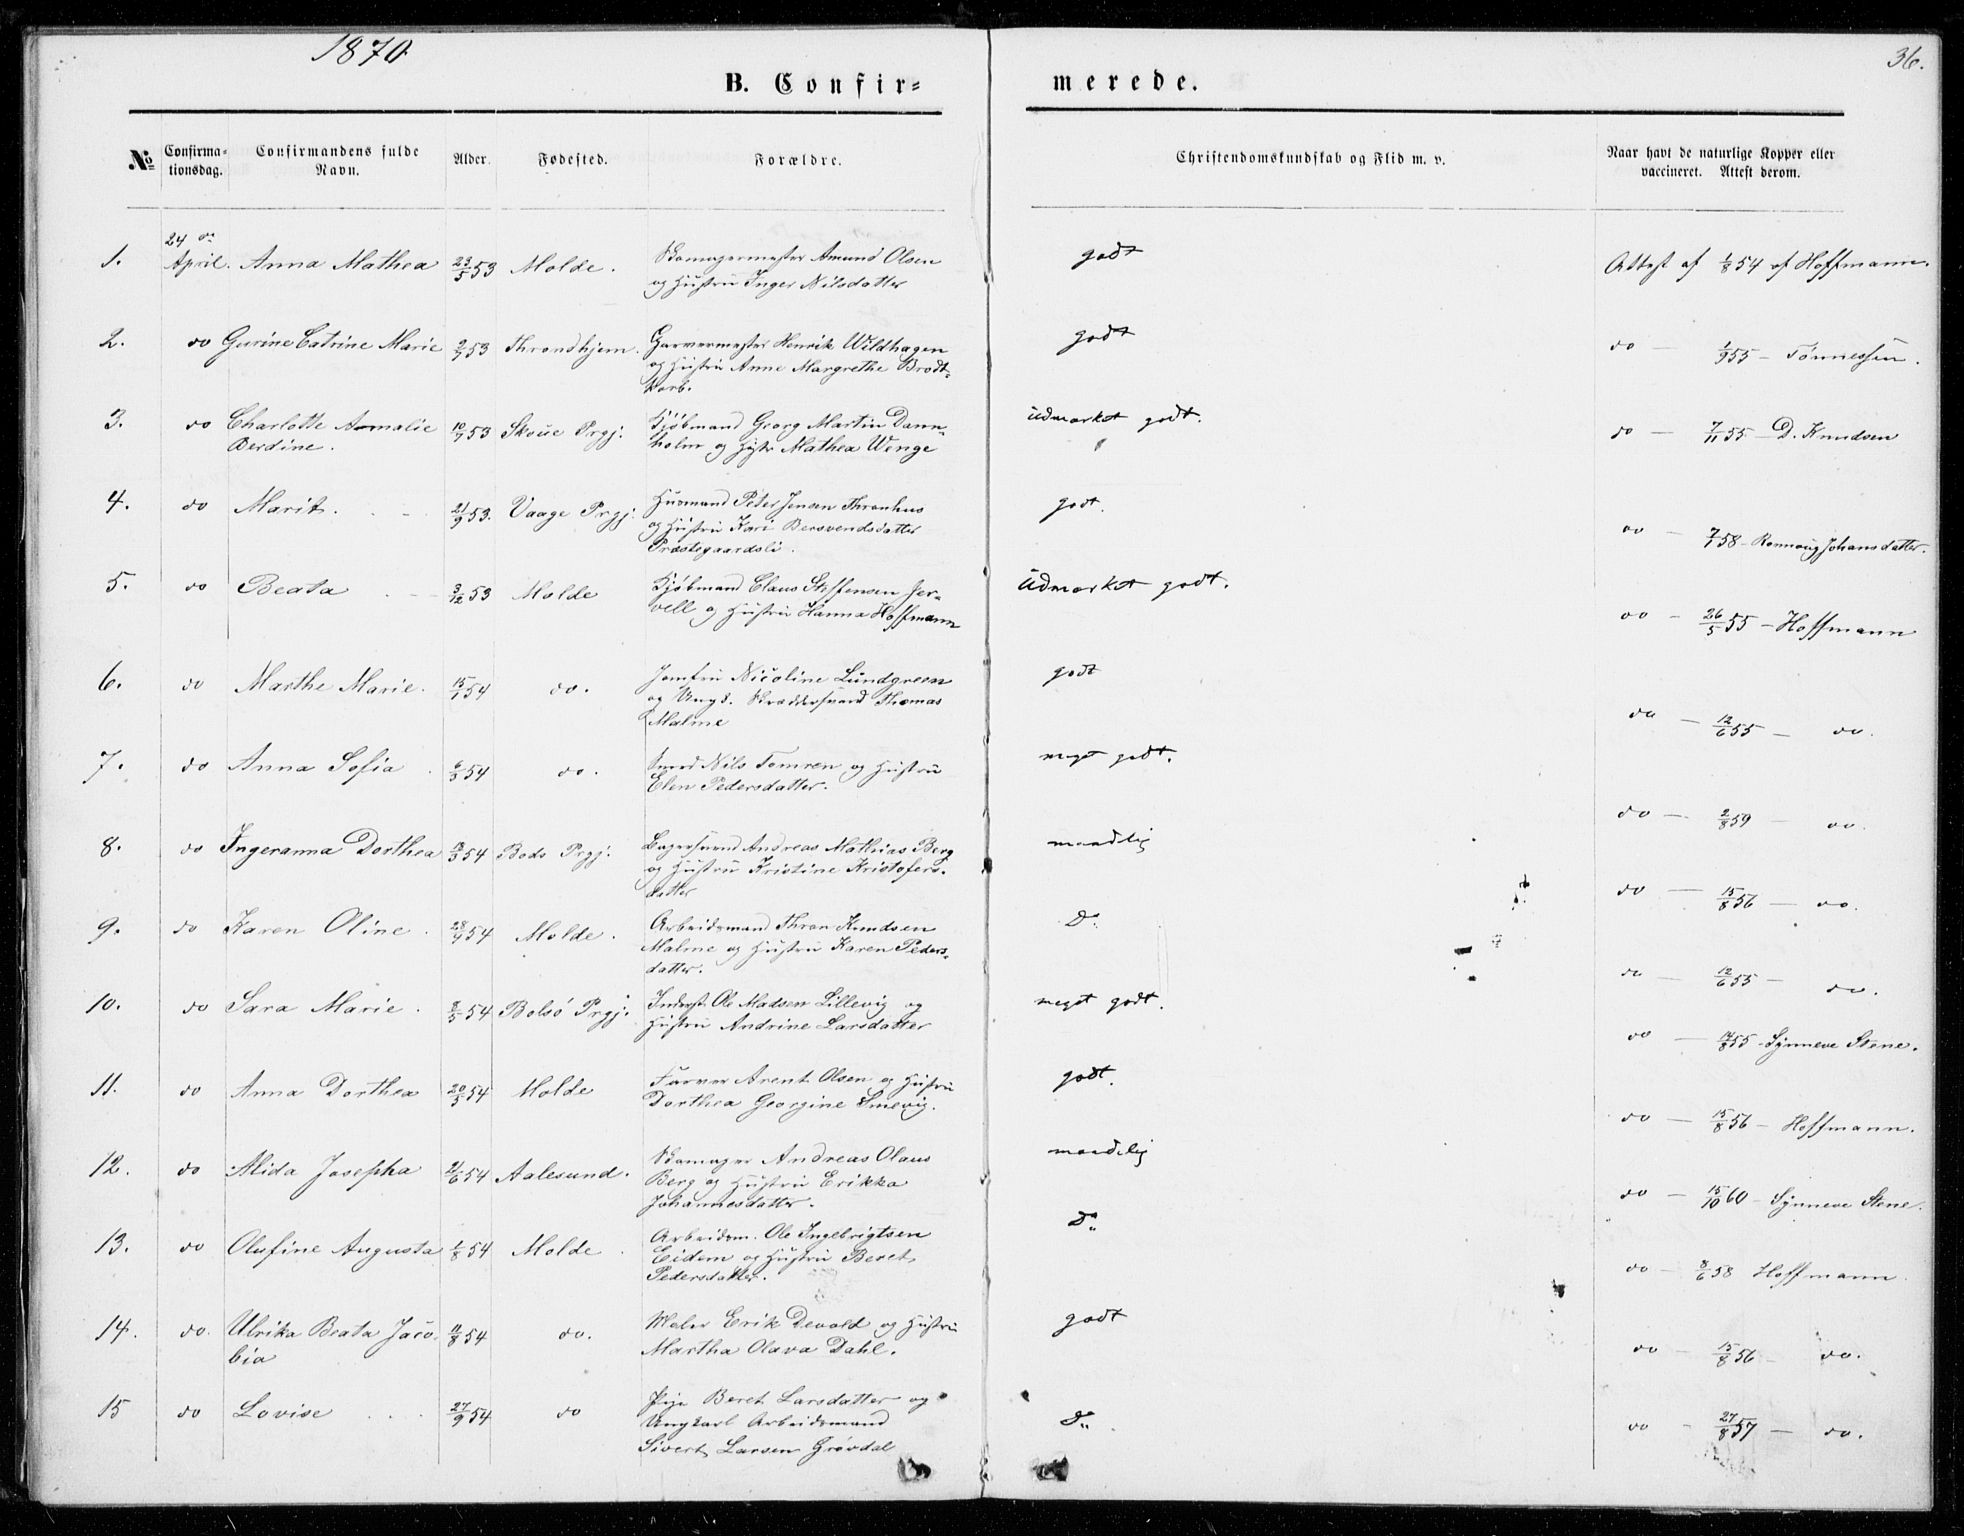 1870
36.
B. Confir= merede.
№ Confirma=tionsdag. Confirmandens fulde Navn. Alder. Fødested. Forældre. Christendomskundskab og Flid m. v. Naar havt de naturlige Kopper eller vaccineret. Attest derom.
1. 24de April. Anna Mathea 23/5 53 Molde. Skomagermester Amund Olsen godt Attest af 1/8 54 af Hoffmann.
og Hustru Inger Nilsdatter
2. do Gurine Catrine Marie 2/7 53 Throndhjem. Garvermester Henrik Wildhagen godt do — 1/9 55 — Tønnessen.
og Hustru Anne Margrethe Brodt=
korb.
3. do Charlotte Amalie 10/7 53 Skoue Prgj. Kjöbmand Georg Martin Dann= udmærket godt. do — 7/11 55 — D. Knudsen
Berdine. holm og Hustr Mathea Wenge
4. do Marit. 21/9 53. Vaage Prgj. Husmand Peter Jensen Thronhus godt. do — 7/1 58 — Rannoug Johansdatter.
og Hustru Kari Bersvendsdatter
Præstegaardsli.
5. do Beata 3/12 53 Molde Kjöbmand Claus Steffensen Jer= udmærket godt. do — 26/5 55 — Hoffmann
vell og Hustru Hanna Hoffmann
6. do Marthe Marie. 15/1 54 do. Jomfru Nicoline Lundgreen godt do — 12/6 55 — do.
og Ungk. Skræddersvend Thomas
Malme
7. do Anna Sofia. 6/3 54 do. Smed Nils Tomren og Hustru meget godt. do — 2/8 59 — do.
Elen Pedersdatter.
8. do Ingeranna Dorthea 18/3 54 Bods Prgj. Bagersvend Andreas Mathias Berg maadelig do — 15/8 56 — do.
og Hustru Kristine Kristofers=
datter
9. do Karen Oline. 28/4 54 Molde. Arbeidsmand Thron Knudsen Do do — 12/6 55 — do.
Malme og Hustru Karen Peders=
datter.
10. do Sara Marie. 8/5 54 Bolsö Prgj. Inderst Ole Madsen Lillevig og meget godt. do — 14/8 55 — Synneve Stene.
Hustru Andrine Larsdatter
11. do Anna Dorthea 20/5 54 Molde Farver Arent Olsen og Hustru godt. do — 15/8 56 — Hoffmann.
Dorthea Georgine Smevig.
12. do Alida Josepha 21/6 54 Aalesund. Skomager Andreas Olaus maadelig do — 15/10 60 — Synneve Stene.
Berg og Hustru Erikka
Johannesdatter.
13. do Olufine Augusta 1/8 54 Molde. Arbeidsm. Ole Ingebrigtsen Do do — 8/6 58 Hoffmann.
Eidem og Hustru Beret
Pedersdatter.
14. do. Ulrika Beata Jaco= 11/8 54 do. Maler Erik Devold og Hustru godt do — 15/8 56 — do.
bia Martha Olava Dahl.
15 do Lovise 27/9 54 do Pige Beret Larsdatter og Do do — 27/8 57 — do.
Ungkarl Arbeidsmand
Sivert Larsen Grövdal